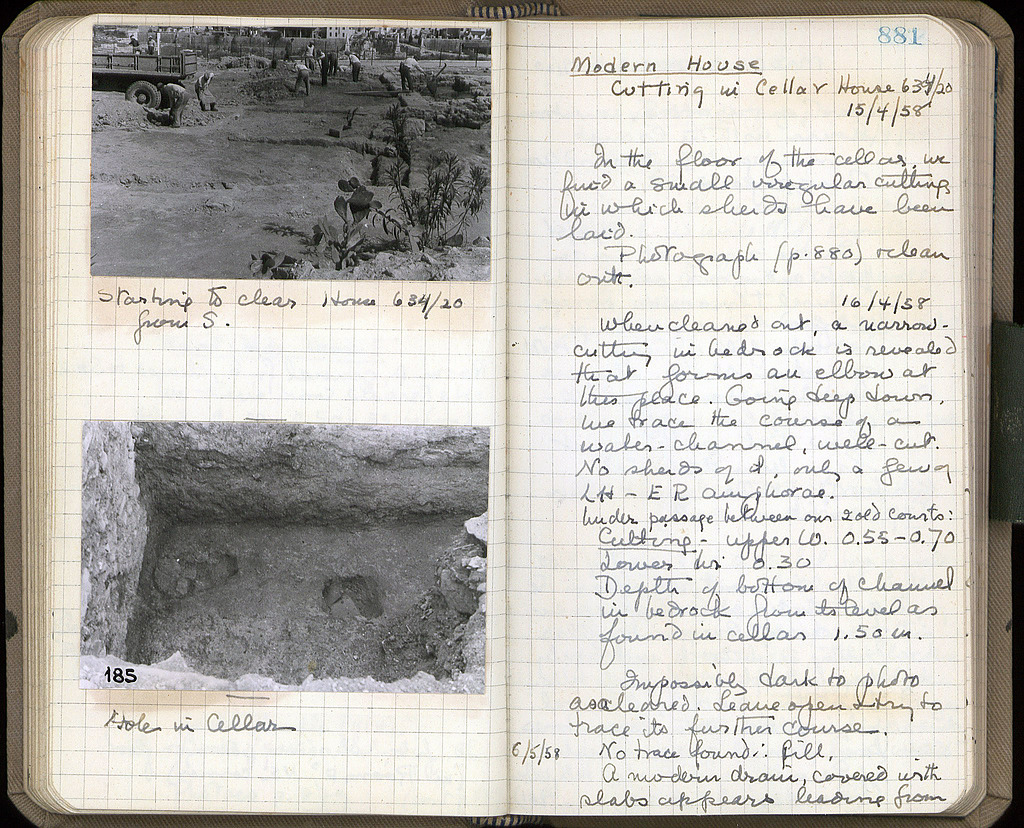 Starting to clear House 634/20
from S.
185
Hole in Cellar
881
Modern House
Cutting in Cellar House 634/20
15/4/58
In the floor of the cellar, we
find a small irregular cutting
in which sherds have been
laid.
Photograph (p. 880) & clean
out.
16/4/58
When cleaned out, a narrow
cutting in bedrock is revealed
that forms an elbow at
this place. Going deep down,
we trace the course of a
water-channel, well-cut.
No sherds of it, only a few of
LH - ER amphorae.
Under passage between our 2 old courts:
Cutting - upper W. 0.55-0.70
Lower W. 0.30
Depth of bottom of channel
in bedrock from its level as
found in cellar 1.50 m.
Impossibly dark to photo
as cleared. Leave open & try to
trace its further course.
6/5/58 No trace found ∴ Fill.
A modern drain, covered with
slabs appears leading from